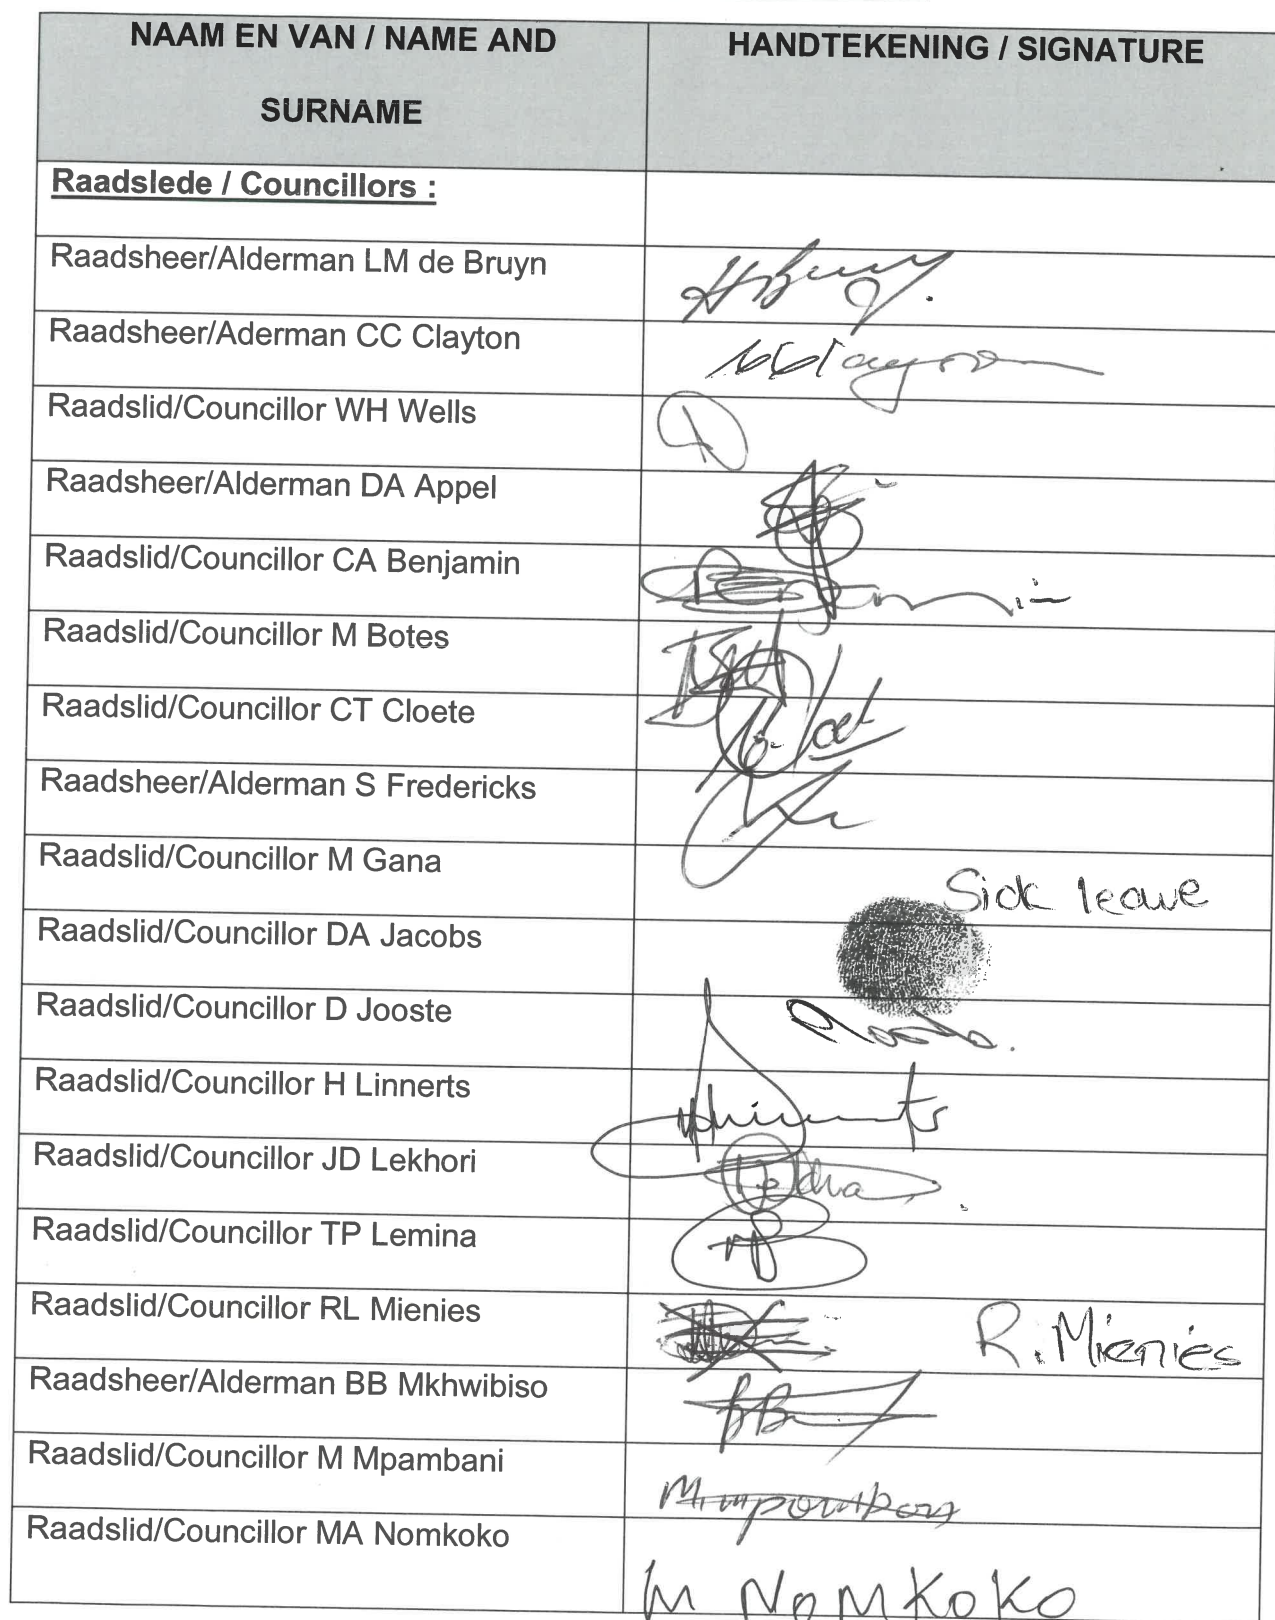 NAAM EN VAN / NAME AND SURNAME
HANDTEKENING / SIGNATURE
Raadslede / Councillors :
Raadsheer/Alderman LM de Bruyn
Raadsheer/Aderman CC Clayton
Raadslid/Councillor WH Wells
Raadsheer/Alderman DA Appel
Raadslid/Councillor CA Benjamin
Raadslid/Councillor M Botes
Raadslid/Councillor CT Cloete
Raadsheer/Alderman S Fredericks
Raadslid/Councillor M Gana
Sick leave
Raadslid/Councillor DA Jacobs
Raadslid/Councillor D Jooste
Raadslid/Councillor H Linnerts
Raadslid/Councillor JD Lekhori
Raadslid/Councillor TP Lemina
Raadslid/Councillor RL Mienies
R. Mienies
Raadsheer/Alderman BB Mkhwibiso
Raadslid/Councillor M Mpambani
Raadslid/Councillor MA Nomkoko
M NOMKOKO